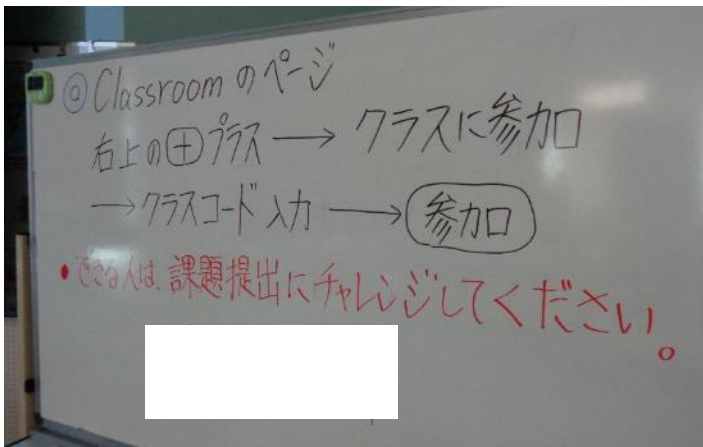 ◎Classroomのページ
右上の⊕プラス→クラスに参加
→クラスコード入力→参加
・できる人は、課題提出にチャレンジしてください。